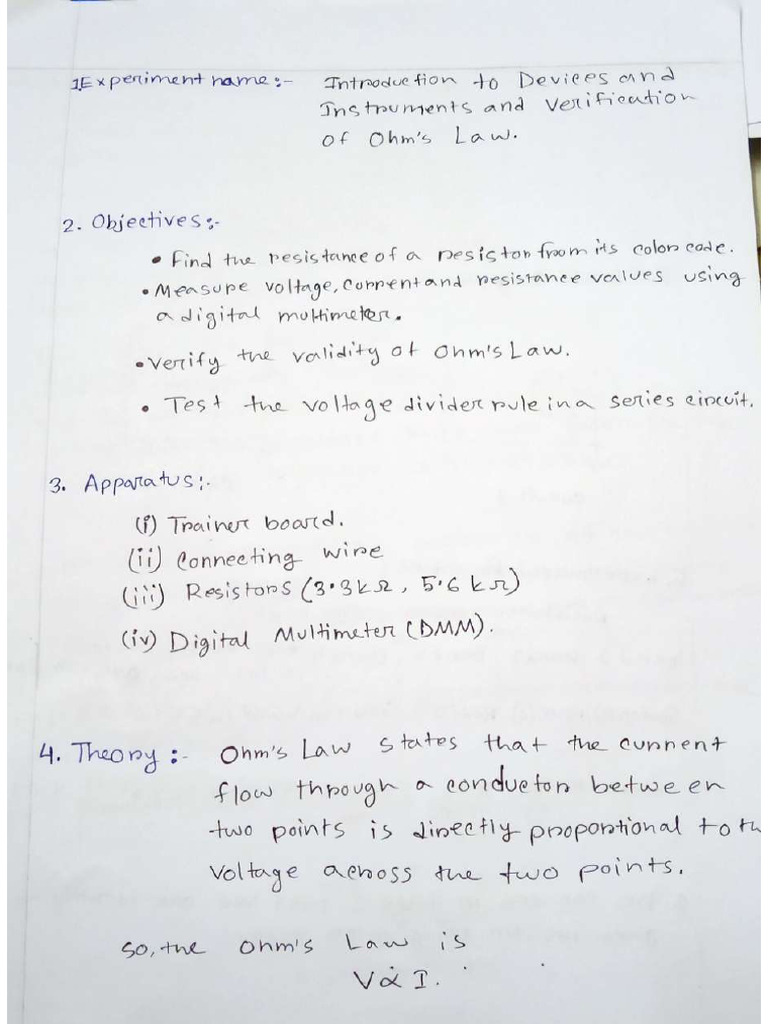 1. Experiment name:- Introduction to Devices and
Instruments and Verification
of Ohm's Law.
2. Objectives:-
• Find the resistance of a resistor from its color code.
• Measure voltage, current and resistance values using
a digital multimeter.
• Verify the validity of Ohm's Law.
• Test the voltage divider rule in a series circuit.
3. Apparatus:-
(i) Trainer board.
(ii) Connecting wire
(iii) Resistors (3.3kΩ, 5.6 kΩ)
(iv) Digital Multimeter (DMM).
4. Theory:- Ohm's Law states that the current
flow through a conductor between
two points is directly proportional to th
voltage across the two points.
So, the Ohm's Law is
V α I.